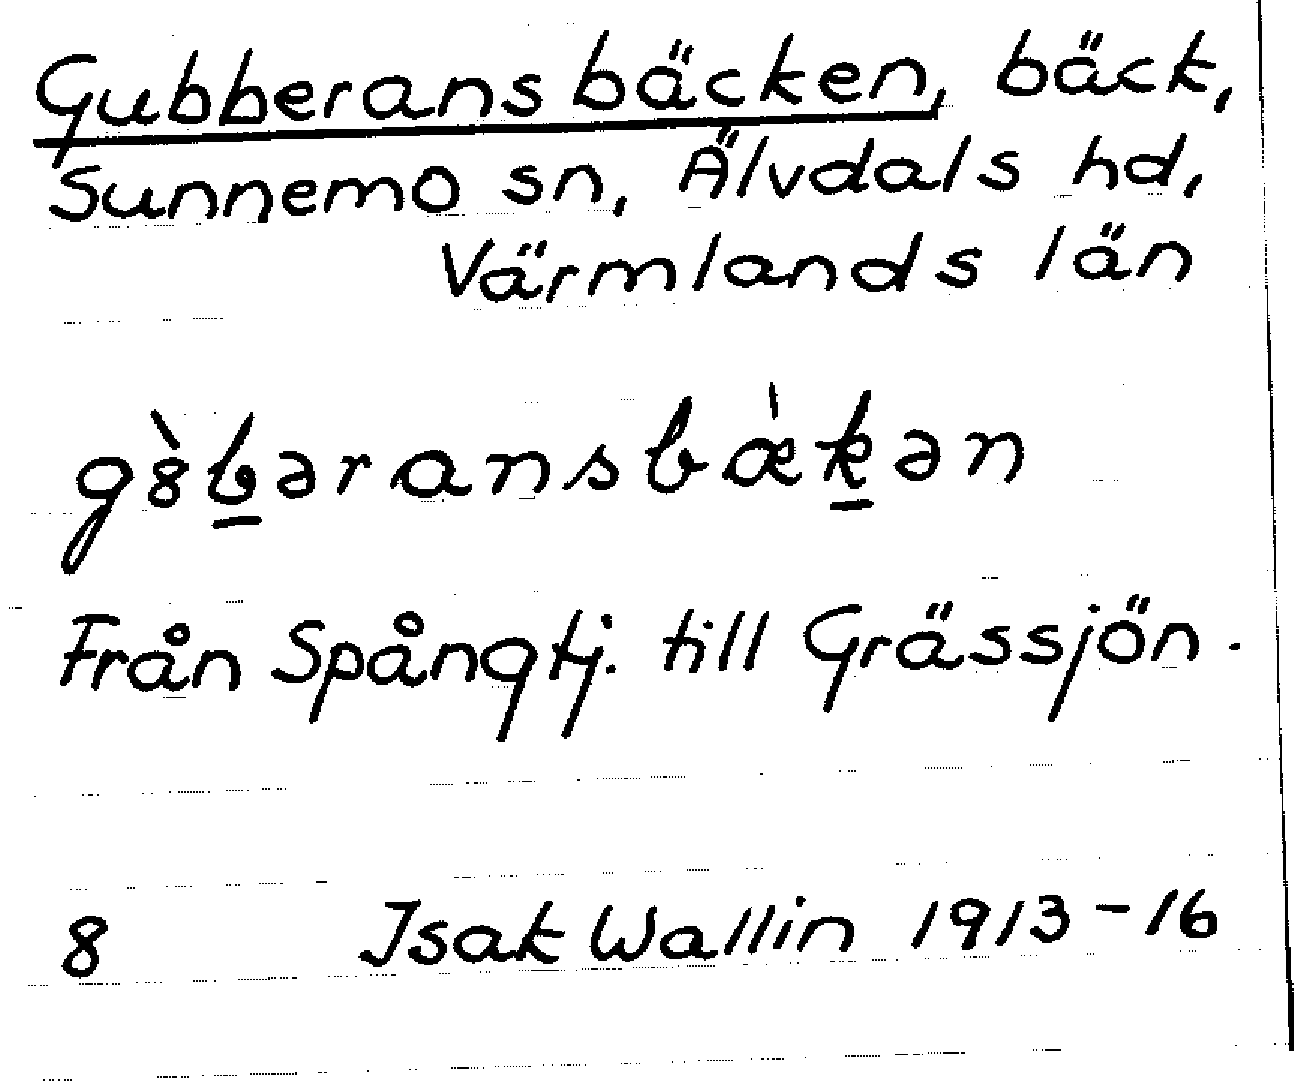 Gubberansbäcken, bäck,
Sunnemo sn, Älvdals hd,
Värmlands län
g8̀b̲əransbæ̍k̲ən
Från Spångtj. till Grässjön.
8 Isak Wallin 1913-16